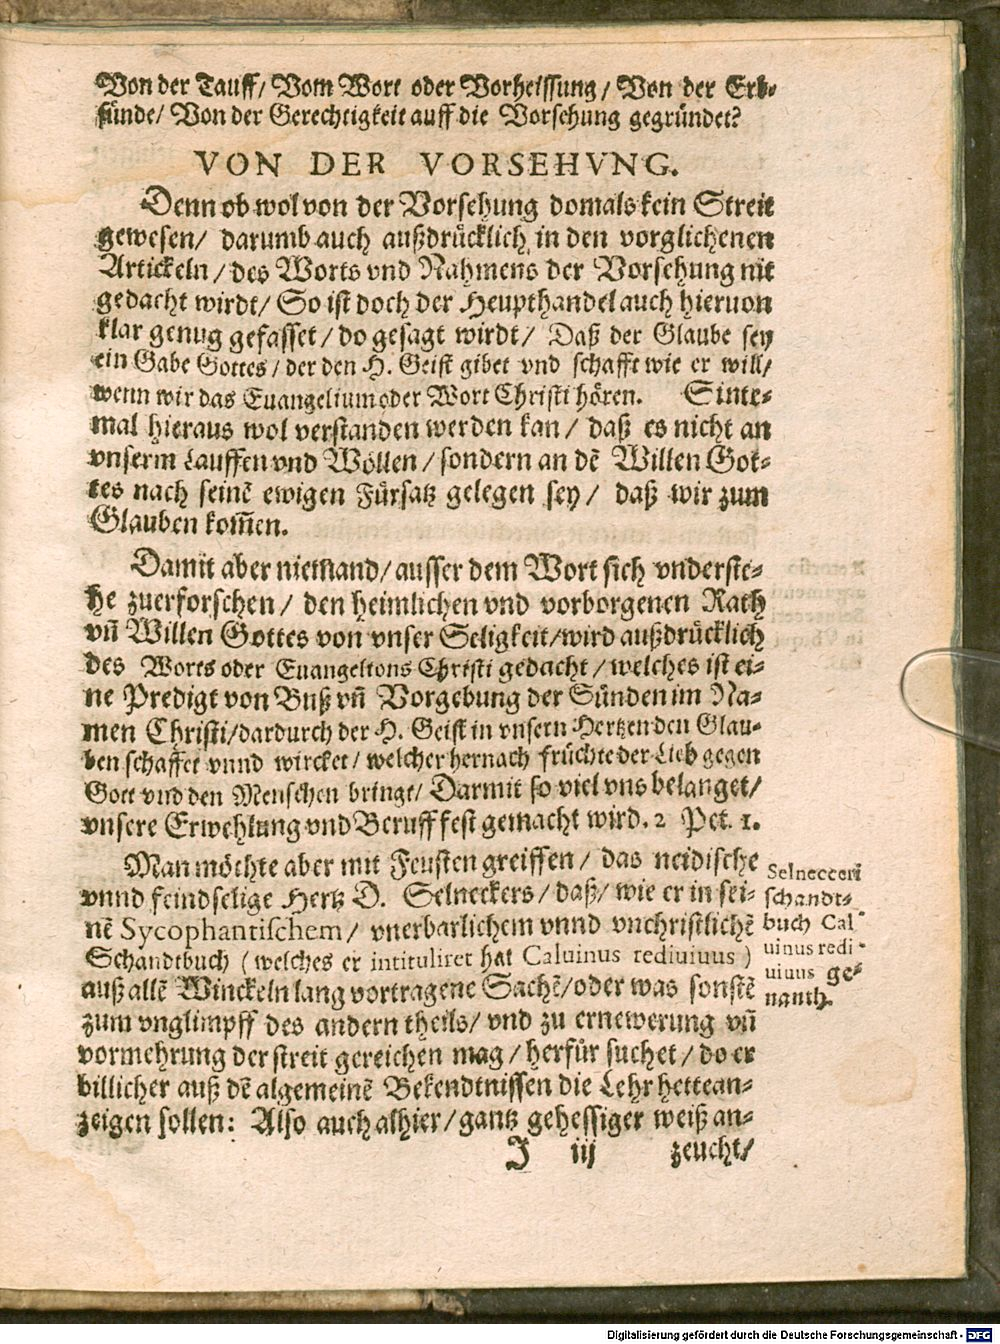 Von der Tauff/ Vom Wort oder Vorheissung/ Von der Erb-
sünde/ Von der Gerechtigkeit auff die Vorsehung gegründet?
VON DER VORSEHVNG.
Denn ob wol von der Vorsehung domals kein Streit
gewesen/ darumb auch außdrücklich in den vorglichenen
Artickeln/ des Worts vnd Nahmens der Vorsehung nit
gedacht wirdt/ So ist doch der Heupthandel auch hieruon
klar genug gefasset/ do gesagt wirdt/ Daß der Glaube sey
ein Gabe Gottes/ der den H. Geist gibet vnd schafft wie er will/
wenn wir das Euangelium oder Wort Christi hören. Sinte-
mal hieraus wol verstanden werden kan/ daß es nicht an
vnserm Lauffen vnd Wöllen/ sondern an dē Willen Got-
tes nach seinē ewigen Fürsatz gelegen sey/ daß wir zum
Glauben kom̄en.
Damit aber niemand/ ausser dem Wort sich vnderste-
he zuerforschen/ den heimlichen vnd vorborgenen Rath
vn̄ Willen Gottes von vnser Seligkeit/ wird außdrücklich
des Worts oder Euangelions Christi gedacht/ welches ist ei-
ne Predigt von Buß vn̄ Vorgebung der Sünden im Na-
men Christi/ dardurch der H. Geist in vnsern Hertzen den Glau-
ben schaffet vnnd wircket/ welcher hernach früchte der Lieb gegen
Gott vnd den Menschen bringt/ Darmit so viel vns belanget/
vnsere Erwehlung vnd Beruff fest gemacht wird. 2 Pet. 1.
Man möchte aber mit Feusten greiffen/ das neidische
vnnd feindselige Hertz D. Selneckers/ daß/ wie er in sei-
nē Sycophantischem/ vnerbarlichem vnnd vnchristlichē
Schandtbuch (welches er intituliret hat Caluinus rediuiuus)
auß allē Winckeln lang vortragene Sachē/ oder was sonstē
zum vnglimpff des andern theils/ vnd zu ernewerung vn̄
vormehrung der streit gereichen mag/ herfür suchet/ do er
billicher auß dē algemeinē Bekendtnissen die Lehr hette an-
zeigen sollen: Also auch alhier/ gantz gehessiger weiß an-
J iij zeucht/
Selnecceri
schandt-
buch Cal-
uinus redi-
uiuus ge-
nanth.
Digitalisierung gefördert durch die Deutsche Forschungsgemeinschaft - DFG